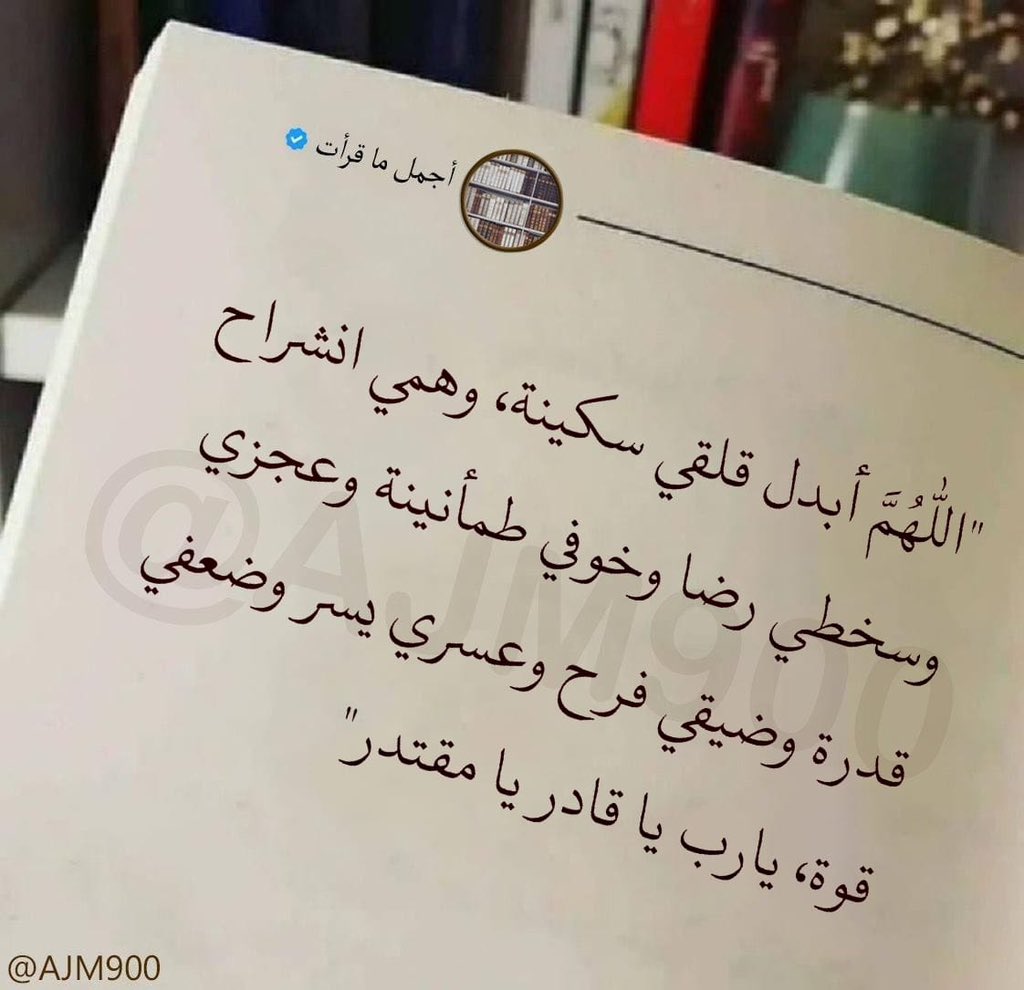 أجمل ما قرأت
"اللّٰهُمَّ أبدل قلقي سكينة، وهمي انشراح
وسخطي رضا وخوفي طمأنينة وعجزي
قدرة وضيقي فرح وعسري يسر وضعفي
قوة، يارب يا قادر يا مقتدر"
@AJM900
@AJM900